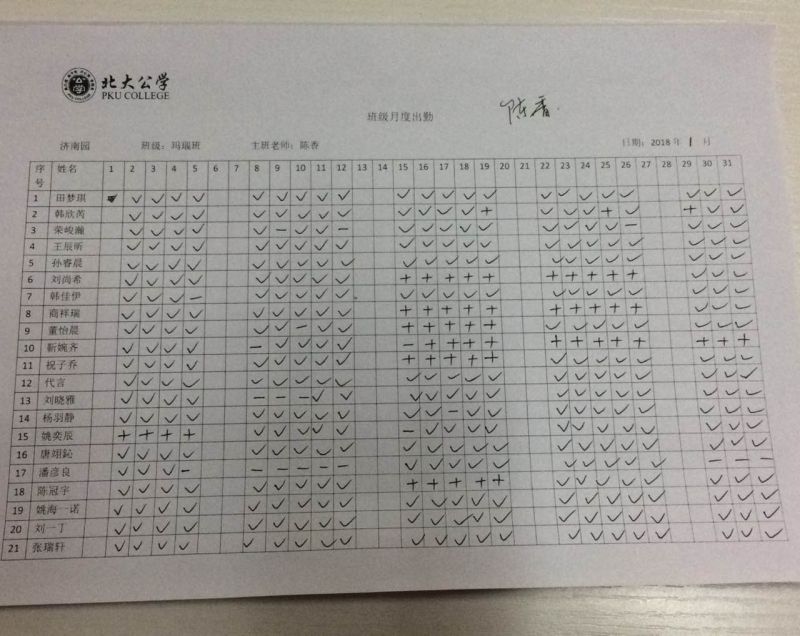 北大公学
PKU COLLEGE
班级月度出勤
陈香
济南园 班级：玛瑙班 主班老师：陈香 日期：2018 年 1 月
序号 姓名 1 2 3 4 5 6 7 8 9 10 11 12 13 14 15 16 17 18 19 20 21 22 23 24 25 26 27 28 29 30 31
1 田梦琪 ✓ ✓ ✓ ✓ ✓ ✓ ✓ ✓ ✓ ✓ ✓ ✓ ✓ ✓ ✓ ✓ ✓ ✓ ✓ ✓ ✓ ✓
2 韩欣芮 ✓ ✓ ✓ ✓ ✓ ✓ ✓ ✓ ✓ ✓ ✓ ✓ ✓ + ✓ ✓ ✓ + ✓ + ✓ ✓
3 荣峻瀚 ✓ ✓ ✓ ✓ ✓ – ✓ ✓ – ✓ ✓ ✓ ✓ ✓ ✓ ✓ ✓ ✓ – ✓ ✓ ✓
4 王辰昕 ✓ ✓ ✓ ✓ ✓ ✓ ✓ ✓ ✓ ✓ ✓ ✓ ✓ ✓ ✓ ✓ ✓ ✓ ✓ ✓ ✓ ✓
5 孙睿晨 ✓ ✓ ✓ ✓ ✓ ✓ ✓ ✓ ✓ ✓ ✓ ✓ ✓ ✓ ✓ ✓ ✓ ✓ ✓ ✓ ✓ ✓
6 刘尚希 ✓ ✓ ✓ ✓ ✓ ✓ ✓ ✓ ✓ + + + + + + + + + + ✓ ✓ ✓
7 韩佳伊 ✓ ✓ ✓ – ✓ ✓ ✓ ✓ ✓ ✓ ✓ ✓ ✓ ✓ ✓ ✓ ✓ ✓ ✓ ✓ ✓ ✓
8 商祥瑞 ✓ ✓ ✓ ✓ ✓ ✓ ✓ ✓ ✓ + + + + + + + + + + ✓ ✓ ✓
9 董怡晨 ✓ ✓ ✓ ✓ ✓ ✓ – ✓ ✓ + + + + + ✓ ✓ ✓ ✓ ✓ ✓ ✓ ✓
10 靳婉齐 ✓ ✓ ✓ ✓ – ✓ ✓ ✓ ✓ – + + + + + + + + + + + +
11 祝子乔 ✓ ✓ ✓ ✓ ✓ ✓ ✓ ✓ ✓ + + + + + ✓ ✓ ✓ ✓ ✓ ✓ ✓ ✓
12 代言 ✓ ✓ ✓ ✓ ✓ ✓ ✓ ✓ ✓ ✓ ✓ ✓ ✓ ✓ ✓ ✓ ✓ ✓ ✓ ✓ ✓ ✓
13 刘晓雅 ✓ ✓ ✓ ✓ – – – ✓ ✓ ✓ ✓ ✓ ✓ ✓ ✓ ✓ ✓ ✓ ✓ ✓ ✓ ✓
14 杨羽静 ✓ ✓ ✓ ✓ ✓ ✓ ✓ ✓ ✓ ✓ ✓ – ✓ ✓ ✓ ✓ ✓ ✓ ✓ ✓ ✓ ✓
15 姚奕辰 + + + + ✓ ✓ ✓ ✓ ✓ – ✓ ✓ ✓ ✓ ✓ ✓ ✓ ✓ ✓ ✓ ✓ ✓
16 唐翊 ✓ ✓ ✓ ✓ ✓ ✓ ✓ ✓ ✓ ✓ ✓ ✓ ✓ ✓ ✓ ✓ ✓ ✓ ✓ ✓ ✓ ✓
17 潘彦良 ✓ ✓ ✓ – – – – – – ✓ ✓ ✓ ✓ ✓ ✓ ✓ ✓ ✓ ✓ – – –
18 陈冠宇 ✓ ✓ ✓ ✓ ✓ ✓ ✓ ✓ ✓ + + + + + ✓ ✓ ✓ ✓ ✓ ✓ ✓ ✓
19 姚海一诺 ✓ ✓ ✓ ✓ ✓ ✓ ✓ ✓ ✓ ✓ ✓ ✓ ✓ ✓ ✓ ✓ ✓ ✓ ✓ ✓ ✓ ✓
20 刘一丁 ✓ ✓ ✓ ✓ ✓ ✓ ✓ ✓ ✓ ✓ ✓ ✓ ✓ ✓ ✓ ✓ ✓ ✓ ✓ ✓ ✓ ✓
21 张瑞轩 ✓ ✓ ✓ ✓ ✓ ✓ ✓ ✓ ✓ ✓ ✓ ✓ ✓ ✓ ✓ ✓ ✓ ✓ ✓ ✓ ✓ ✓